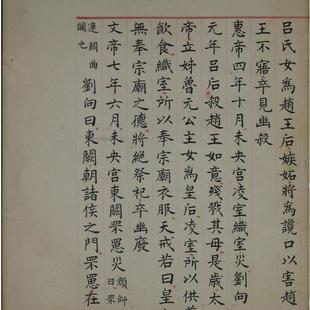 呂氏女為趙王后嫉妬將為讒口以害趙
王不寤卒見幽殺
惠帝四年十月未央宮凌室織室災劉向
元年呂后殺趙王如意殘戮其母是歲太
帝立姊魯元公主女為皇后凌室所以供養
飲食織室所以奉宗廟衣服天戒若曰皇后
無奉宗廟之德將絕祭祀卒幽廢
文帝七年六月未央宮東闕罘罳災顏師
曰罘
連闕曲
閣之
劉向曰東闕朝諸侯之門罘罳在